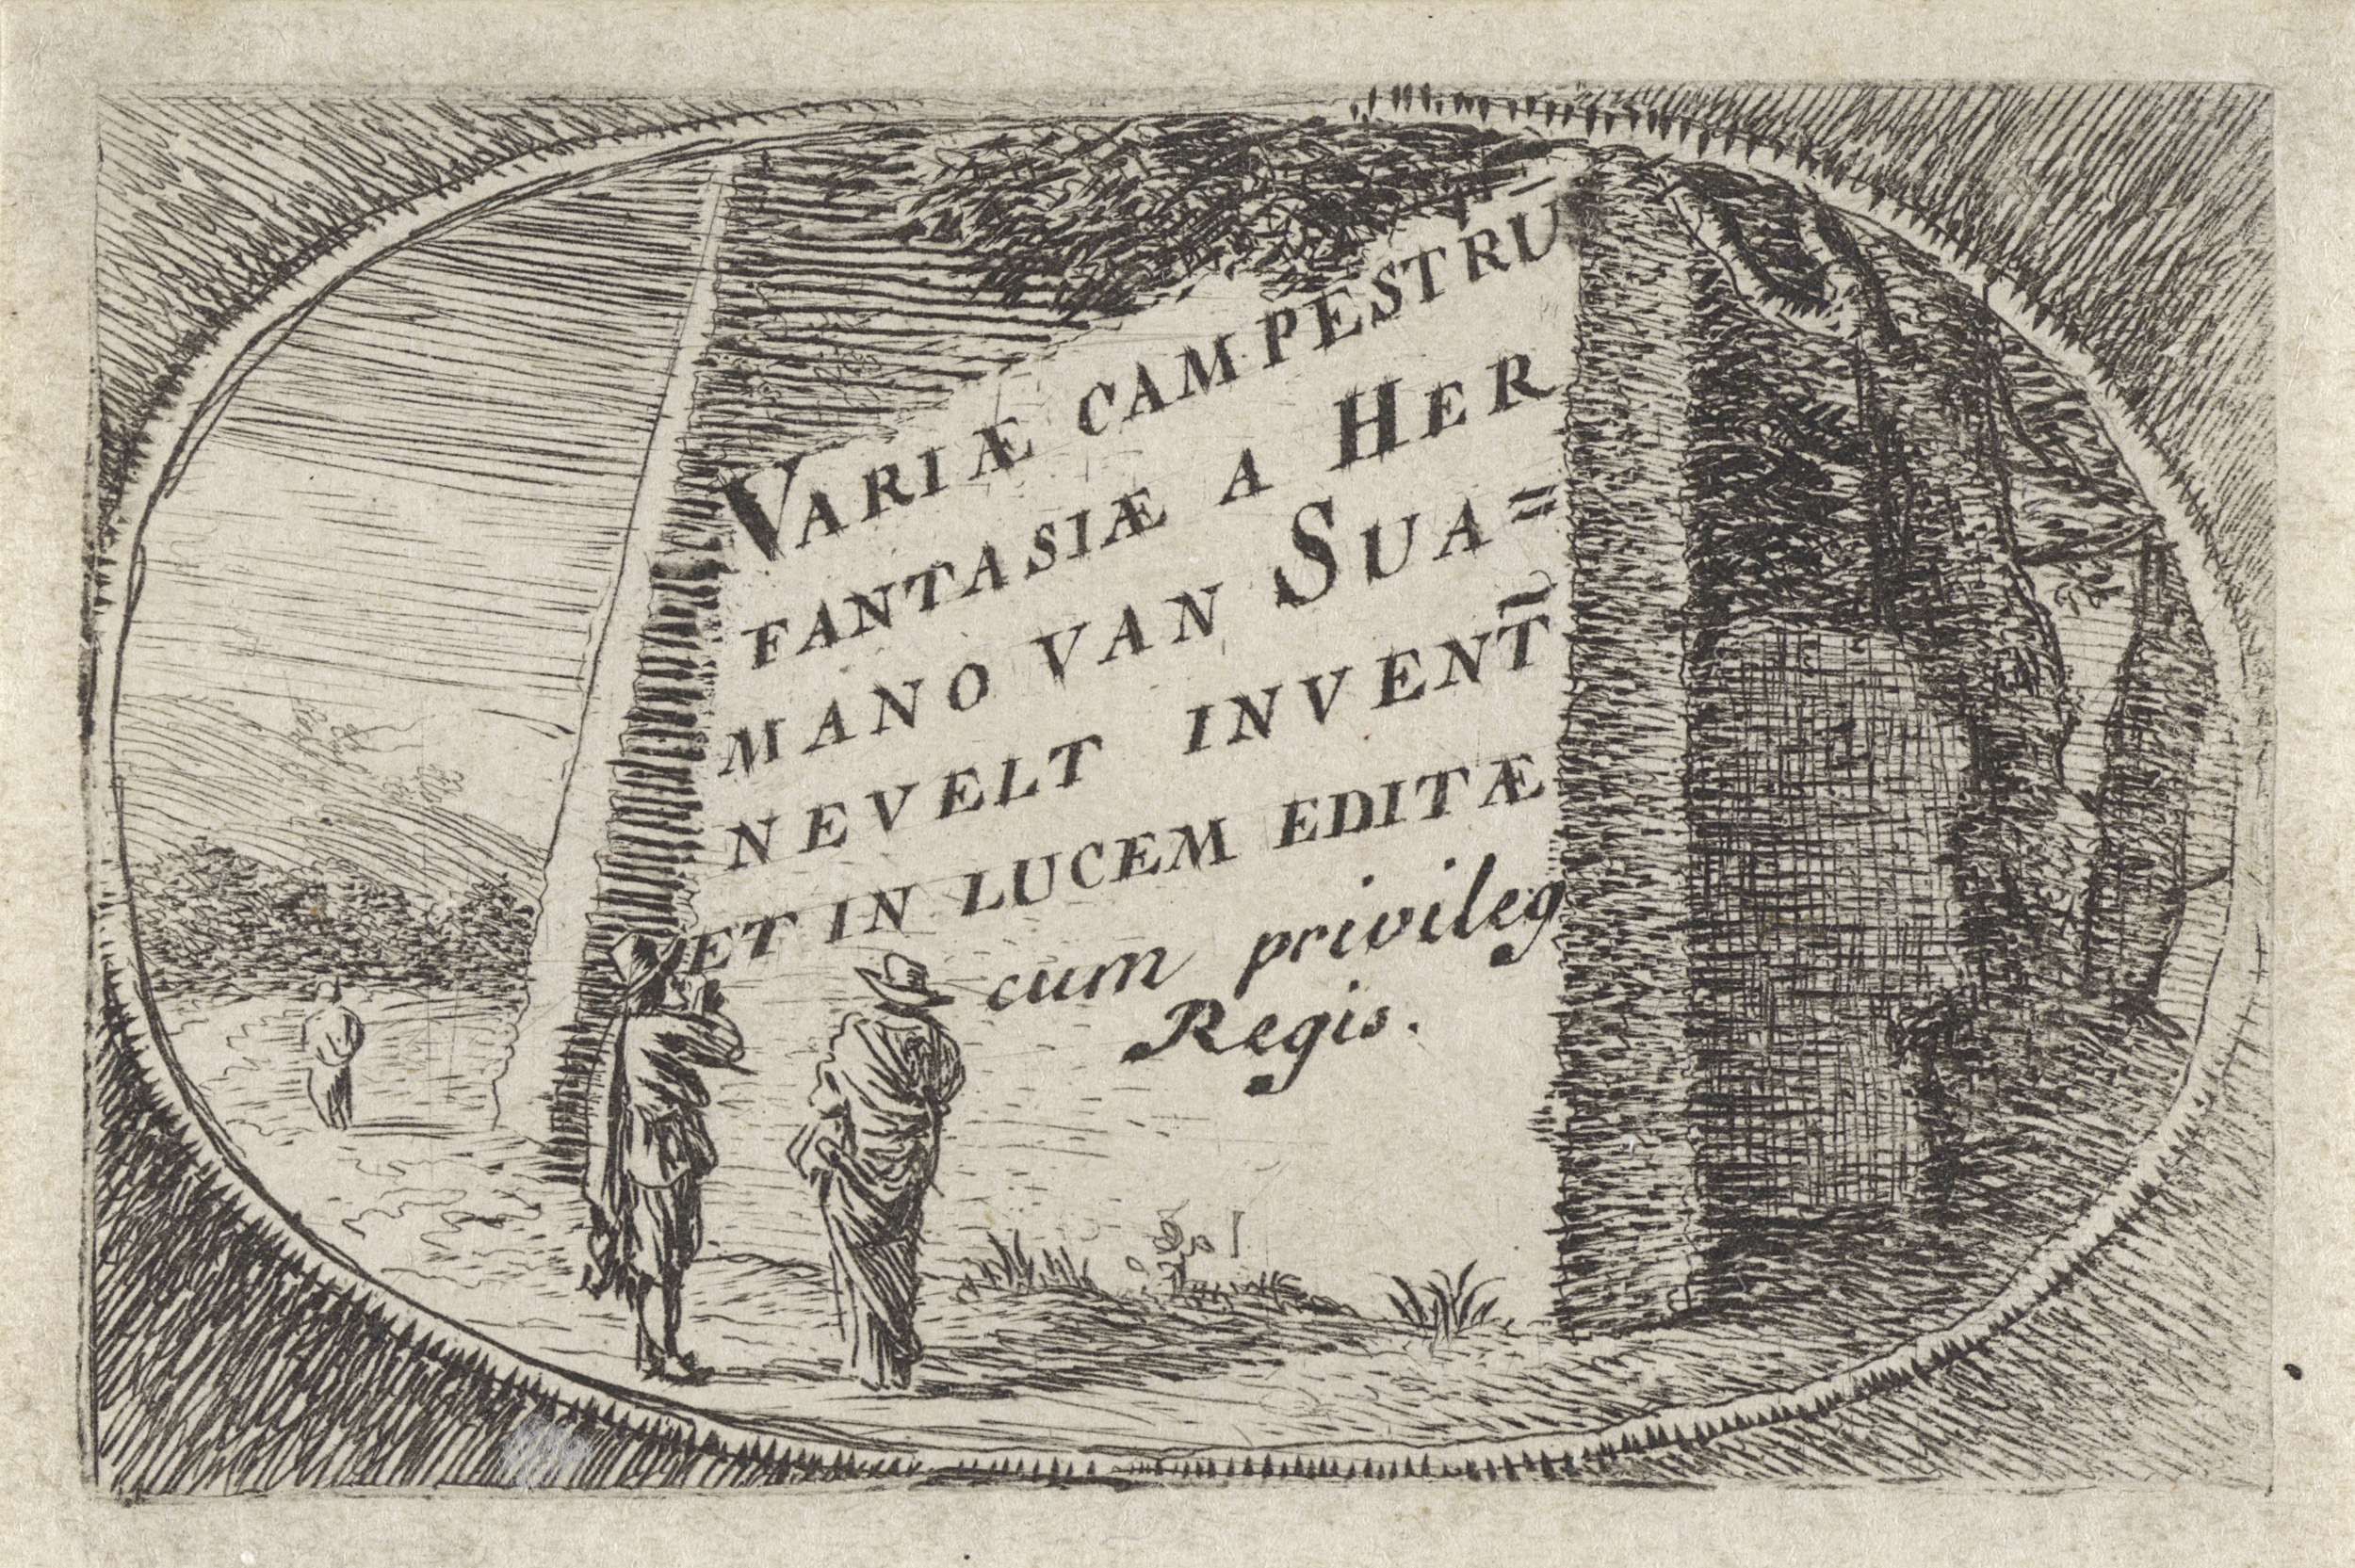 VARIÆ CAMPESTRŪ
FANTASIÆ A HER
MANO VAN SUA=
NEVELT INVENT̃
ET IN LUCEM EDITÆ
cum privileg
Regis.
1